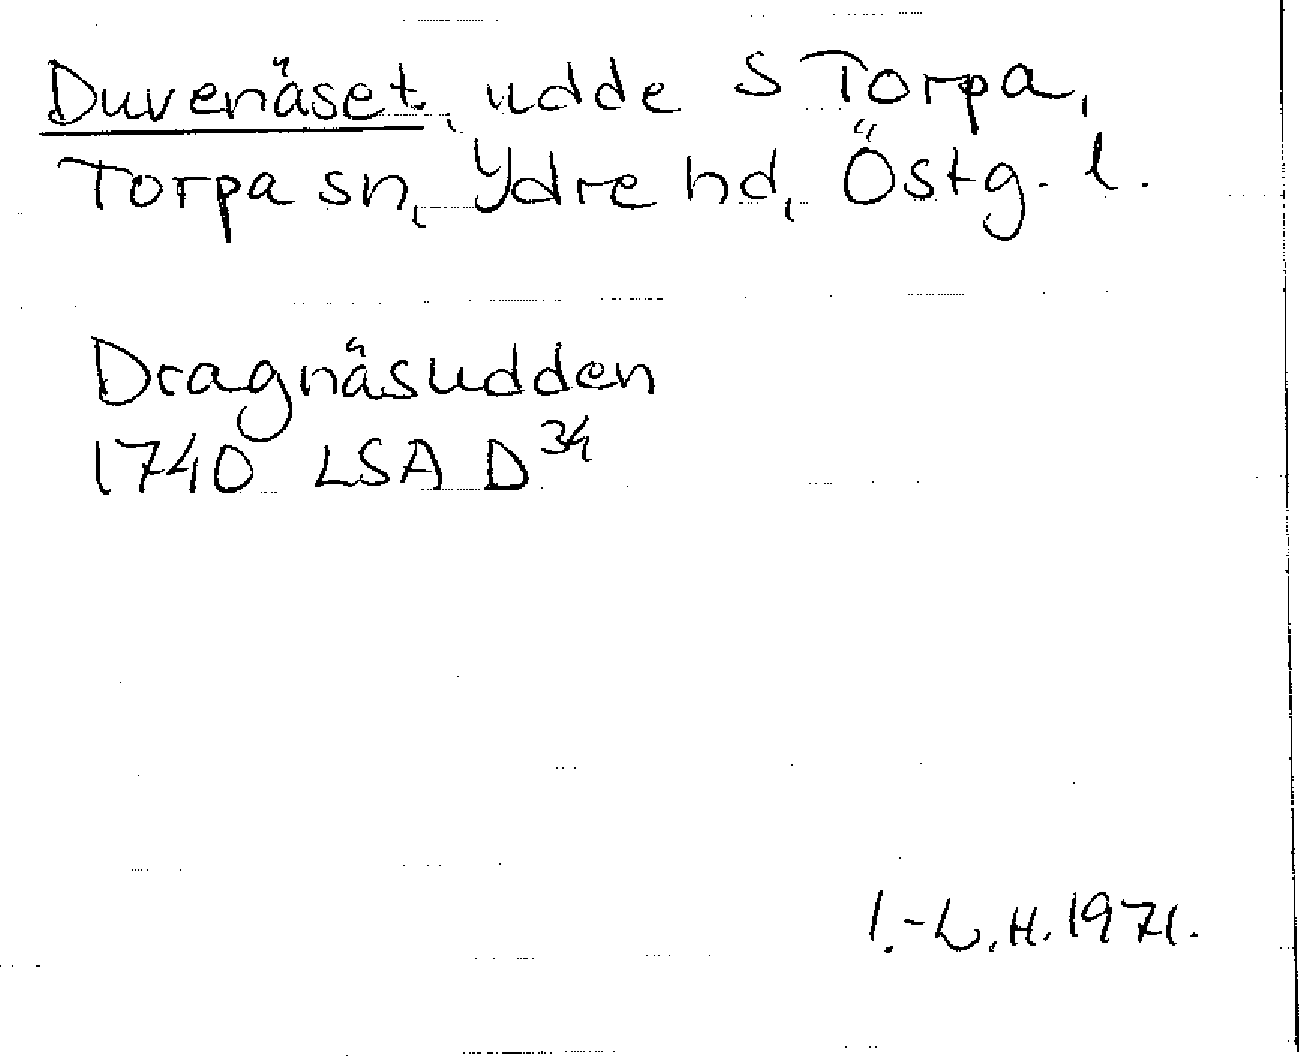 Duvenäset, udde S Torpa,
Torpa sn, Ydre hd, Östg. l.
Dragnäsudden
1740 LSA D³⁴
I.-L. H. 1971.